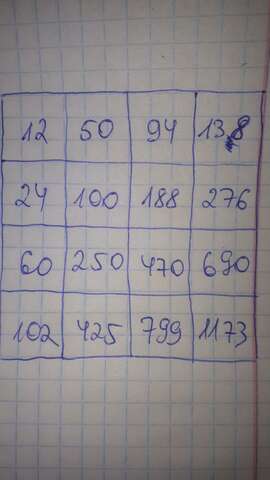 12 50 94 138
24 100 188 276
60 250 470 690
102 425 799 1173